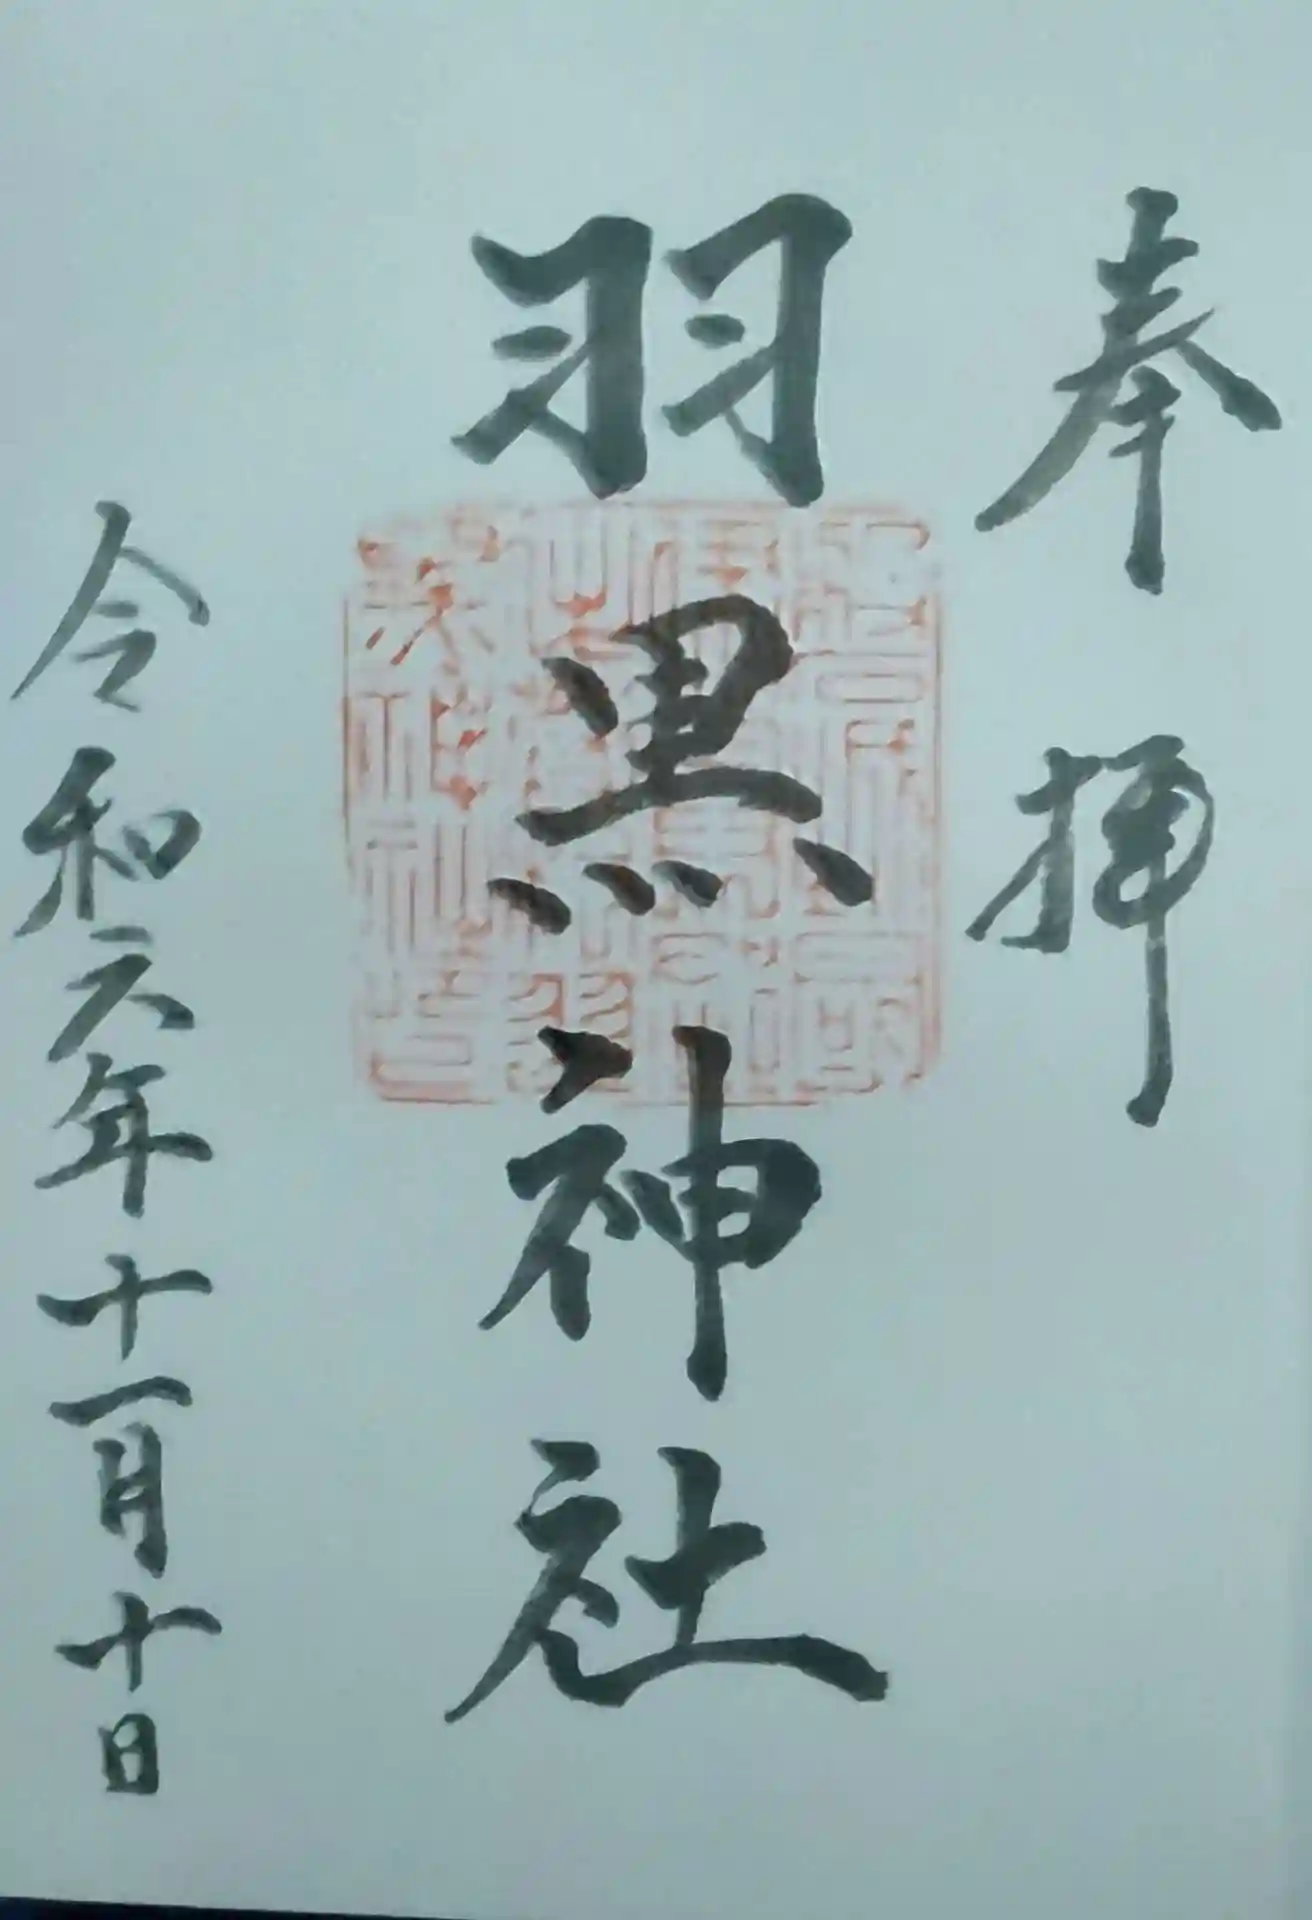 奉拝
羽黒神社
令和六年十一月十日